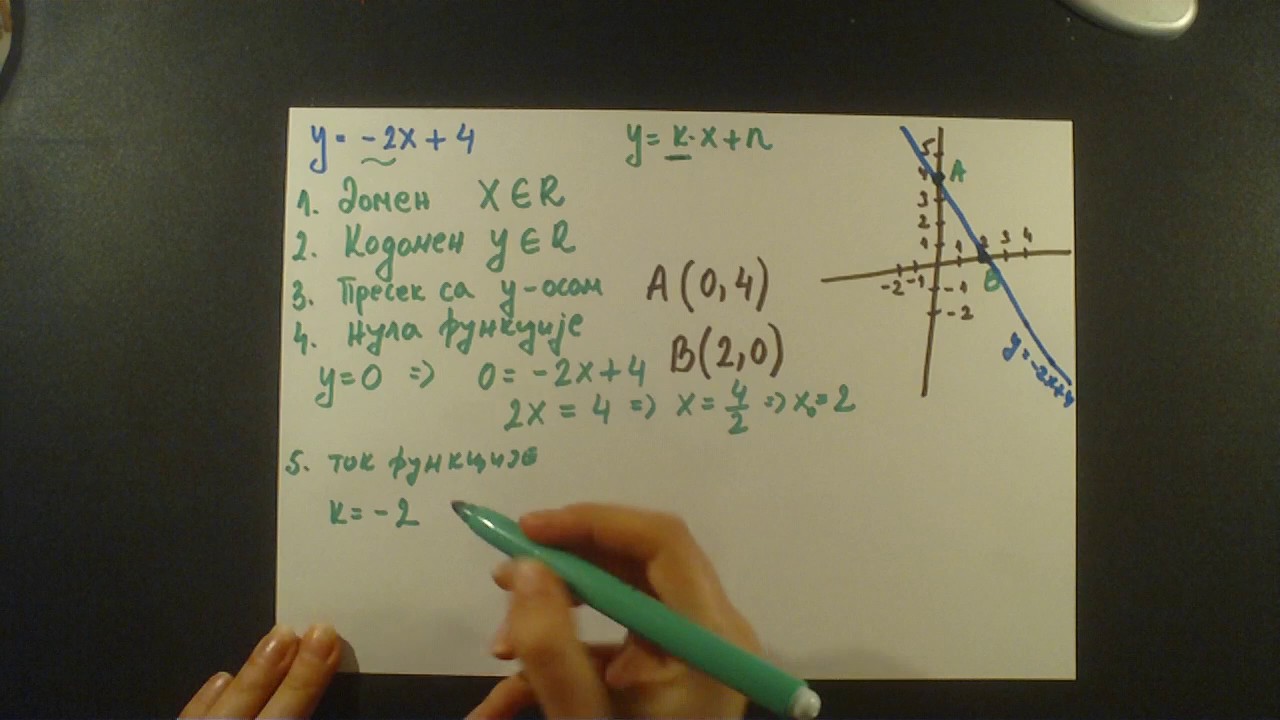 y = -2x + 4
y = k·x + n
1. Домен x ∈ R
2. Кодомен y ∈ R
3. Пресек са y-осом A(0,4)
4. Нула функције B(2,0)
y=0 => 0 = -2x + 4
2x = 4 => x = 4/2 => x₀ = 2
5. ток функције
k = -2
5
4 A
3
2
1
-2 -1 1 2 3 4
B
-1
-2
y = -2x+4